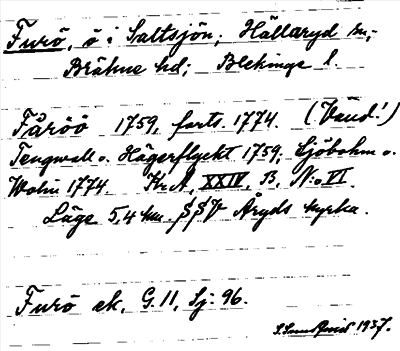 Furö, ö i Saltsjön; Hällaryd sn,
Bräkne hd; Blekinge l.
Fåröö 1759, forts. 1774. (Vänd!)
Tengwall o. Hägerflyckt 1759; Sjöbohm o.
Wohn 1774. Kr. A. XXIV. B. N:o VI.
Läge 5,4 km. SSV Åryds kyrka.
Furö ek. G. 11, Sj: 96.
S. Sundqvist 1937.